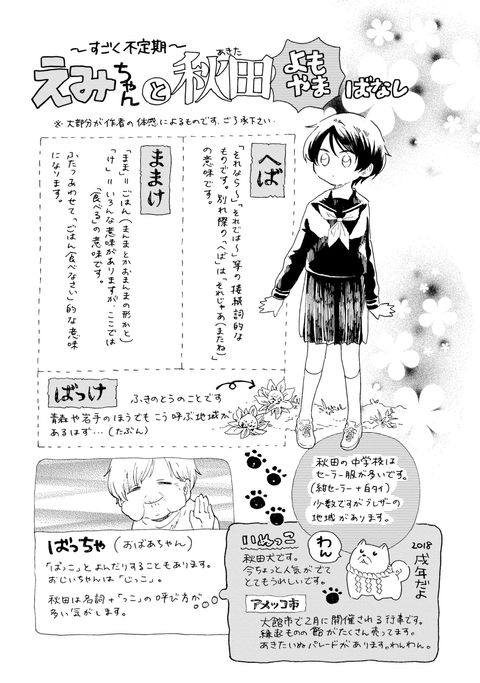 ～すごく不定期～
えみちゃんと秋田よもやまばなし
あきた
※大部分が作者の体感によるものです。ご了承下さい。
へば
「それなら〜」「それでは〜」等の接続詞的な
ものです。別れ際の「へば」は「それじゃあ(またね)」
の意味です。
ままけ
「まま」＝ごはん(まんまとかおまんまの形かと)
「け」＝いろんな意味がありますが、ここでは
「食べる」の意味です。
ふたつあわせて「ごはん食べなさい」的な意味
になります。
ばっけ
ふきのとうのことです
青森や岩手のほうでもこう呼ぶ地域が
あるはず…(たぶん)
秋田の中学校は
セーラー服が多いです。
(紺セーラー＋白タイ)
少数ですがブレザーの
地域があります。
ばっちゃ(おばあちゃん)
「ばっこ」とよんだりすることもあります。
おじいちゃんは「じっこ」。
秋田は名詞＋「っこ」の呼び方が
多い気がします。
いぬっこ
秋田犬です。
今ちょっと人気がでて
とてもうれしいです。
わん
2018
戌年だよ
アメッコ市
大館市で2月に開催される行事です。
縁起ものの飴がたくさん売ってます。
あきたいぬパレードがあります。わんわん。